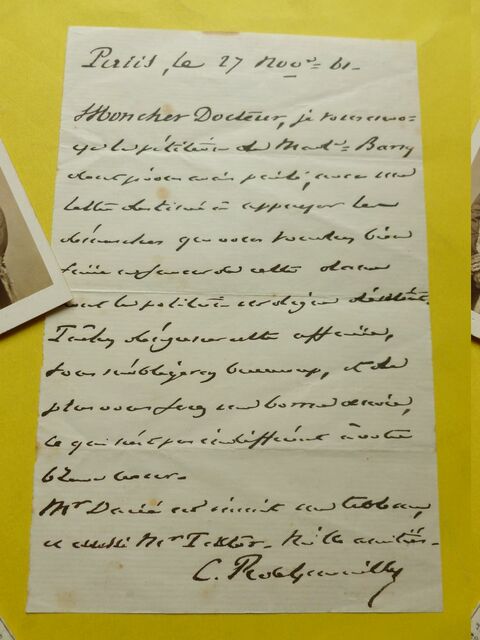 Paris, le 27 Nov.e 61-
Mon cher Docteur, je vous envo-
ye la pétition de Mad.e Barry
dont je vous avais parlé, avec une
lettre destinée à appuyer les
démarches que vous voudrez bien
faire en faveur de cette dame
dont la position est digne d'intérêt.
Tâchez d'égayer cette affaire,
vous m'obligerez beaucoup, et de
plus vous ferez une bonne œuvre,
ce qui n'est pas indifférent à votre
bon cœur.
Mr David est inscrit au tableau,
et aussi Mr Tessier. Mille amitiés-
C.